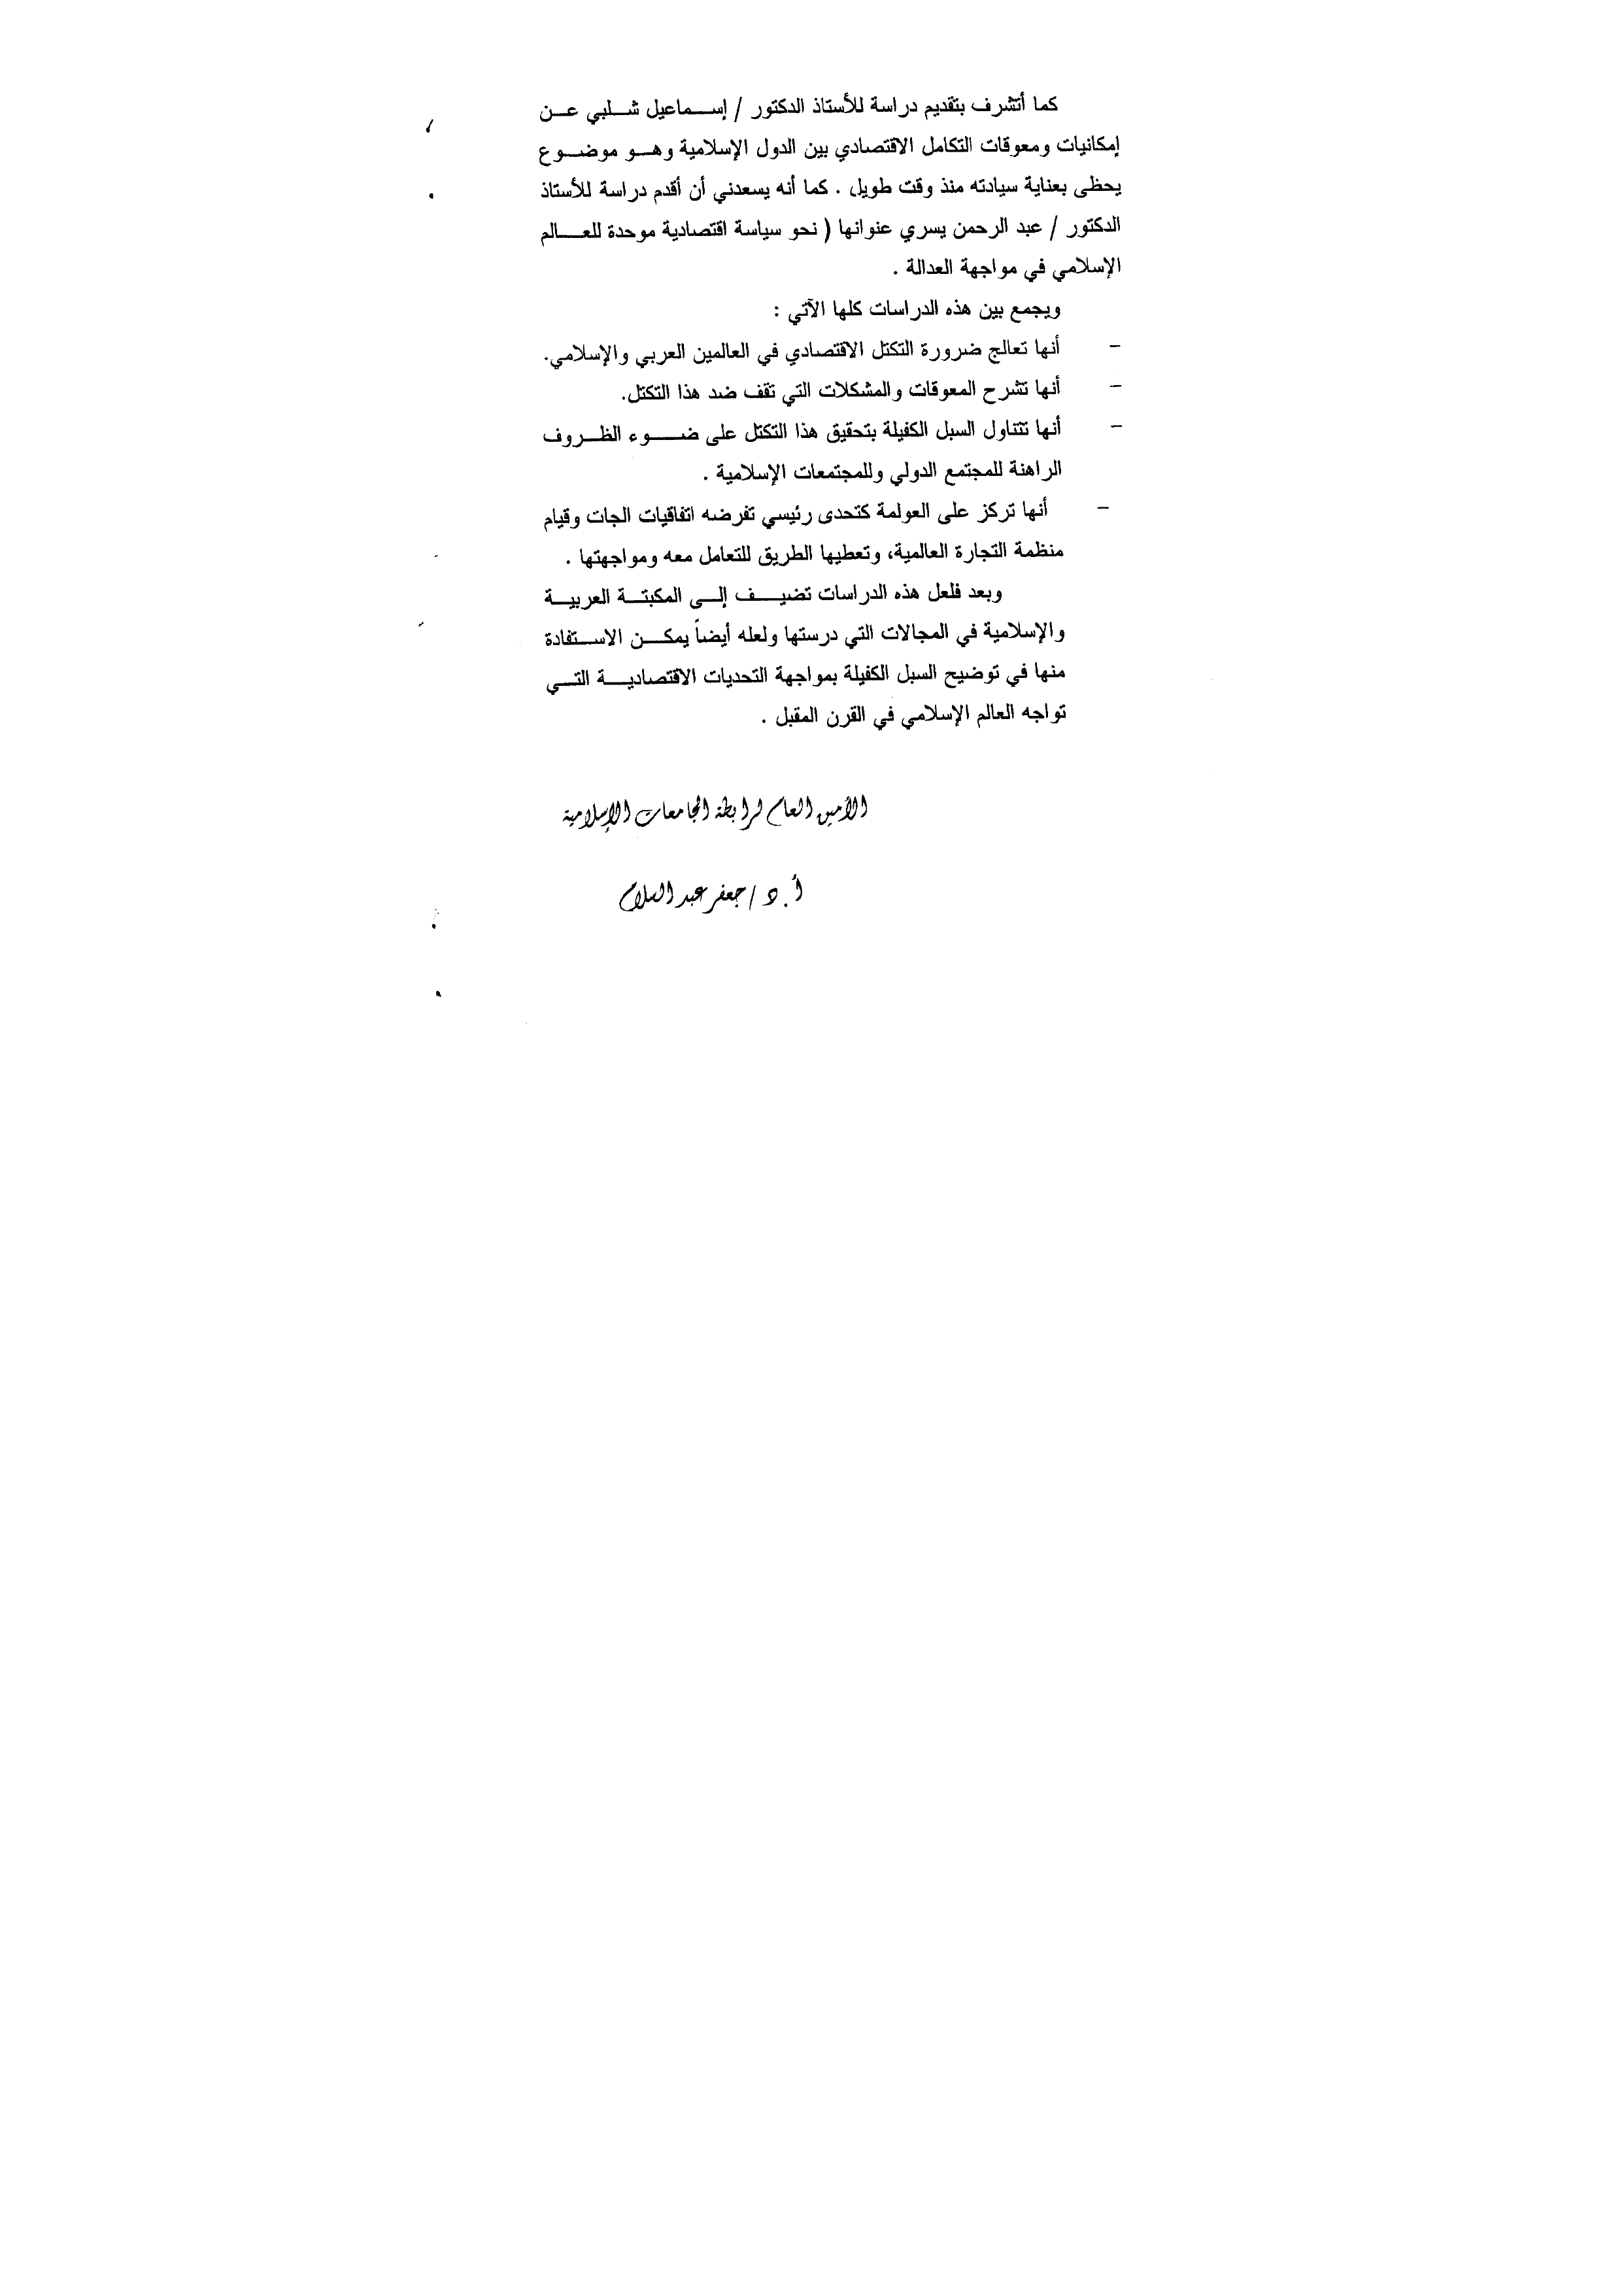 كما أتشرف بتقديم دراسة للأستاذ الدكتور / إسماعيل شلبي عن
إمكانيات ومعوقات التكامل الاقتصادي بين الدول الإسلامية وهو موضوع
يحظى بعناية سيادته منذ وقت طويل . كما أنه يسعدني أن أقدم دراسة للأستاذ
الدكتور / عبد الرحمن يسري عنوانها ( نحو سياسة اقتصادية موحدة للعالم
الإسلامي في مواجهة العدالة .
ويجمع بين هذه الدراسات كلها الآتي :
– أنها تعالج ضرورة التكتل الاقتصادي في العالمين العربي والإسلامي.
– أنها تشرح المعوقات والمشكلات التي تقف ضد هذا التكتل.
– أنها تتناول السبل الكفيلة بتحقيق هذا التكتل على ضوء الظروف
الراهنة للمجتمع الدولي وللمجتمعات الإسلامية .
– أنها تركز على العولمة كتحدى رئيسي تفرضه اتفاقيات الجات وقيام
منظمة التجارة العالمية، وتعطيها الطريق للتعامل معه ومواجهتها .
وبعد فلعل هذه الدراسات تضيف إلى المكبتة العربية
والإسلامية في المجالات التي درستها ولعله أيضاً يمكن الاستفادة
منها في توضيح السبل الكفيلة بمواجهة التحديات الاقتصادية التي
تواجه العالم الإسلامي في القرن المقبل .
الأمين العام لرابطة الجامعات الإسلامية
أ.د/جعفر عبد السلام